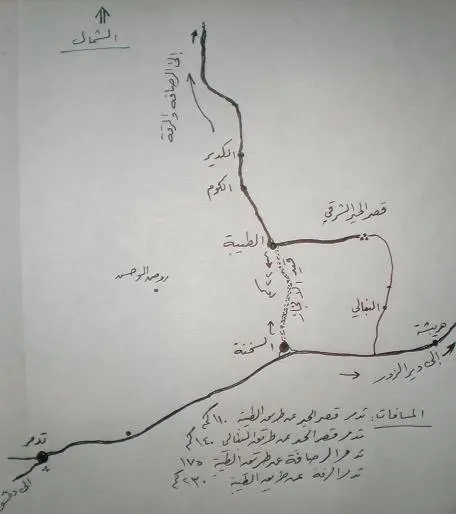 الشمال
إلى الرصافة والرقة
الكدير
الكوم
قصر الحير الشرقي
الطيبة
٢٢ كم
روض الوحش
البغالي
السخنة
حريشة
إلى دير الزور
تدمر
إلى دمشق
المسافات: تدمر قصر الحير عن طريق الطيبة ١١٠ كم
تدمر قصر الحير عن طريق البغالي ١٤٠ كم
تدمر الرصافة عن طريق الطيبة ١٧٥
تدمر الرقة عن طريق الطيبة ٢٣٠ كم